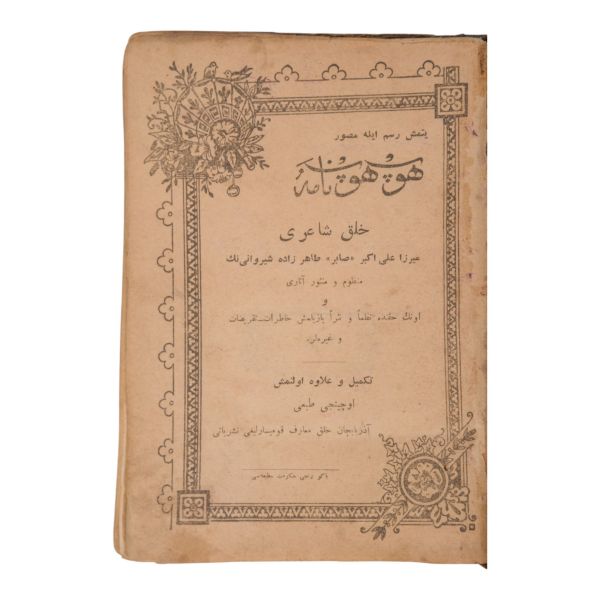 یتمش رسم ایله مصور
هوپ هوپ نامه
خلق شاعری
میرزا علی اکبر «صابر» طاهر زاده شیروانی نك
منظوم و منثور آثاری
و
اونك حقنده نظماً و نثراً یازیلمش خاطرات، تقریضات
و غیره‌لر
تکمیل و علاوه اولنمش
اوچینجی طبعی
آذربایجان خلق معارف قومیسارلیغی نشریاتی
باکو ‌حکومت مطبعه‌سی